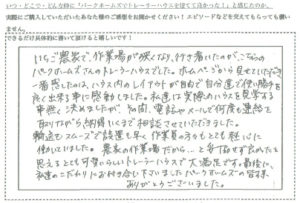 いつ・どこで・どんな時に「パークホームズでトレーラーハウスを建てて良かった！」と感じたのか、
実際にご購入していただいたあなた様のご感想をお聞かせください！エピソードなどを交えてもらっても構いません。
できるだけ具体的に書いて頂けると嬉しいです！
いちご農家で、作業場が狭くなり、行き着いたのがこちらの
パークホームズさんのトレーラーハウスでした。ホームページから見せていただき
一番感じたのは、ハウス内のレイアウトが自由で自分達で使い勝手を
良く出来る事に感動しました。私達は実際のハウスを見学する
事無く決めましたが、その間、電話やメールで何度も連絡を
取りながら、納得いくまで相談させていただきました。
輸送もスムーズで設置も早く作業員の方もとても熱心に
働いていました。農家の作業場だから…と手抜せず良かったと
思えるとても可愛らしいトレーラーハウスで大満足です。最後に、
私達のこだわりにお付き合い下さいましたパークホームズの皆様、
ありがとうございました。